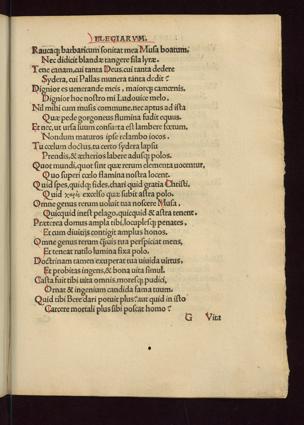 ELEGIARVM.
Raucaq; barbaricum sonitat mea Musa boatum.
Nec didicit blandæ tangere fila lyræ.
Tene canam, cui tanta Deus, cui tanta dedere
Sydera, cui Pallas munera tanta dedit?
Dignior es venerande meis, maiorq; camœnis,
Dignior hoc nostro mi Ludouice melo.
Nil mihi cum musis commune, nec aptus ad ista
Qua pede gorgoneus flumina fudit equus.
Et nec, ut ursa suum consueta est lambere fœtum,
Nondum maturos ipse relambo iocos.
Tu cœlum doctus, tu certo sydera lapsu
Prendis, & ætherios labere adusq; polos.
Quot mundi, quot sint quæ rerum elementa uocentur,
Quo superi cœlo flamina nostra locent.
Quid spes, quid q; fides, chari quid gratia Christi,
Quid excelso quæ subit astra polo.
Omne genus rerum uoluit tua noscere Musa,
Quicquid inest pelago, quicquid & astra tenent.
Præterea domus ampla tibi, locuplesq; penates,
Et cum diuitijs contigit amplus honos.
Omne genus rerum quiuis tua perspiciat mens,
Et teneat rutilo lumina fixa polo.
Doctrinam tamen exuperat tua uiuida uirtus,
Et probitas ingens, & bona uita simul.
Casta fuit tibi uita omnis, moresq; pudici,
Ornat & ingenium candida fama tuum.
Quid tibi Bere dari potuit plus? aut quid in isto
Carcere mortali plus sibi poscat homo?
G Vita